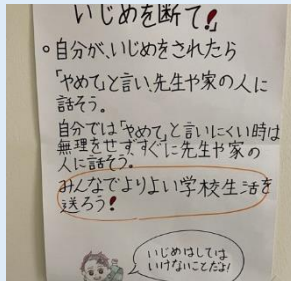 いじめを断て!
。自分が、いじめをされたら
「やめて」と言い、先生や家の人に
話そう。
自分では「やめて」と言いにくい時は
無理をせず、すぐに先生や家の
人に話そう。
みんなでよりよい学校生活を
送ろう!
いじめはしては
いけないことだよ!